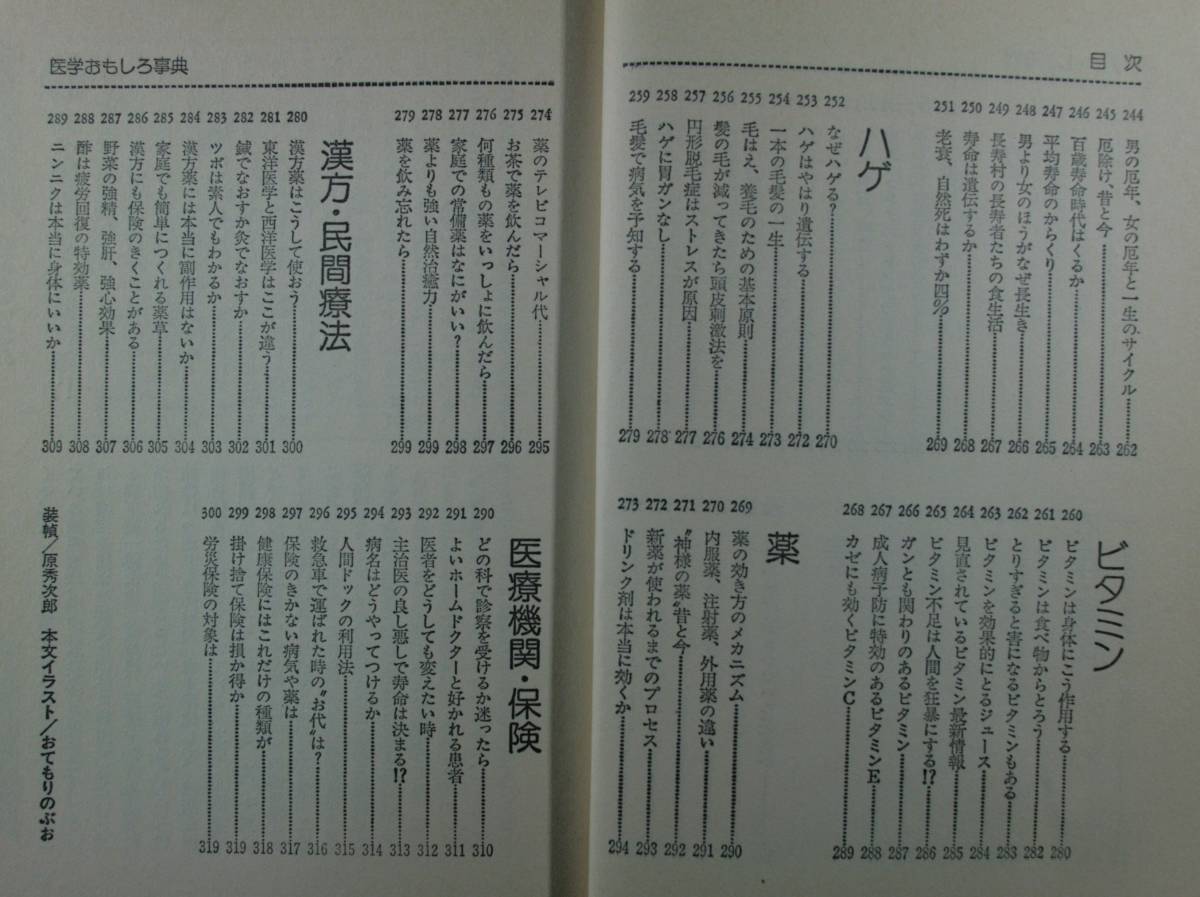 目次
244 男の厄年、女の厄年と一生のサイクル 262
245 厄除け、昔と今 263
246 百歳寿命時代はくるか 264
247 平均寿命のからくり 265
248 男より女のほうがなぜ長生き 266
249 長寿村の長寿者たちの食生活 267
250 寿命は遺伝するか 268
251 老衰、自然死はわずか四% 269
ハゲ
252 なぜハゲる? 270
253 ハゲはやはり遺伝する 272
254 一本の毛髪の一生 273
255 毛はえ、養毛のための基本原則 274
256 髪の毛が減ってきたら頭皮刺激法を 276
257 円形脱毛症はストレスが原因 277
258 ハゲに胃ガンなし 278
259 毛髪で病気を予知する 279
ビタミン
260 ビタミンは身体にこう作用する 280
261 ビタミンは食べ物からとろう 282
262 とりすぎると害になるビタミンもある 283
263 ビタミンを効果的にとるジュース 284
264 見直されているビタミン最新情報 285
265 ビタミン不足は人間を狂暴にする!? 286
266 ガンとも関わりのあるビタミン 287
267 成人病予防に特効のあるビタミンE 288
268 カゼにも効くビタミンC 289
薬
269 薬の効き方のメカニズム 290
270 内服薬、注射薬、外用薬の違い 291
271 “神様の薬”昔と今 292
272 新薬が使われるまでのプロセス 293
273 ドリンク剤は本当に効くか 294
医学おもしろ事典
274 薬のテレビコマーシャル代 295
275 お茶で薬を飲んだら 296
276 何種類もの薬をいっしょに飲んだら 297
277 家庭での常備薬はなにがいい? 298
278 薬よりも強い自然治癒力 299
279 薬を飲み忘れたら 299
漢方・民間療法
280 漢方薬はこうして使おう 300
281 東洋医学と西洋医学はここが違う 301
282 鍼でなおすか灸でなおすか 302
283 ツボは素人でもわかるか 303
284 漢方薬には本当に副作用はないか 304
285 家庭でも簡単につくれる薬草 305
286 漢方にも保険のきくことがある 306
287 野菜の強精、強肝、強心効果 307
288 酢は疲労回復の特効薬 308
289 ニンニクは本当に身体にいいか 309
医療機関・保険
290 どの科で診察を受けるか迷ったら 310
291 よいホームドクターと好かれる患者 311
292 医者をどうしても変えたい時 312
293 主治医の良し悪しで寿命は決まる!? 313
294 病名はどうやってつけるか 314
295 人間ドックの利用法 315
296 救急車で運ばれた時の“お代”は? 316
297 保険のきかない病気や薬は 317
298 健康保険にはこれだけの種類が 318
299 掛け捨て保険は損か得か 319
300 労災保険の対象は 319
装幀/原秀次郎 本文イラスト/おてもりのぶお